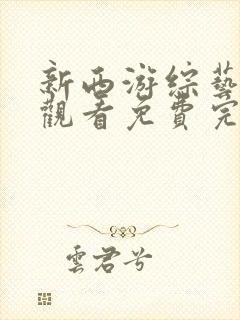 新西游綜藝
觀看免費完
雲君兮